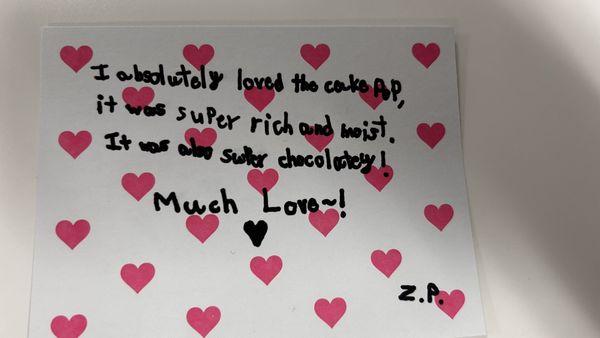 I absolutely loved the cake pop,
it was super rich and moist.
It was also super chocolatey!
Much Love~!
Z.P.